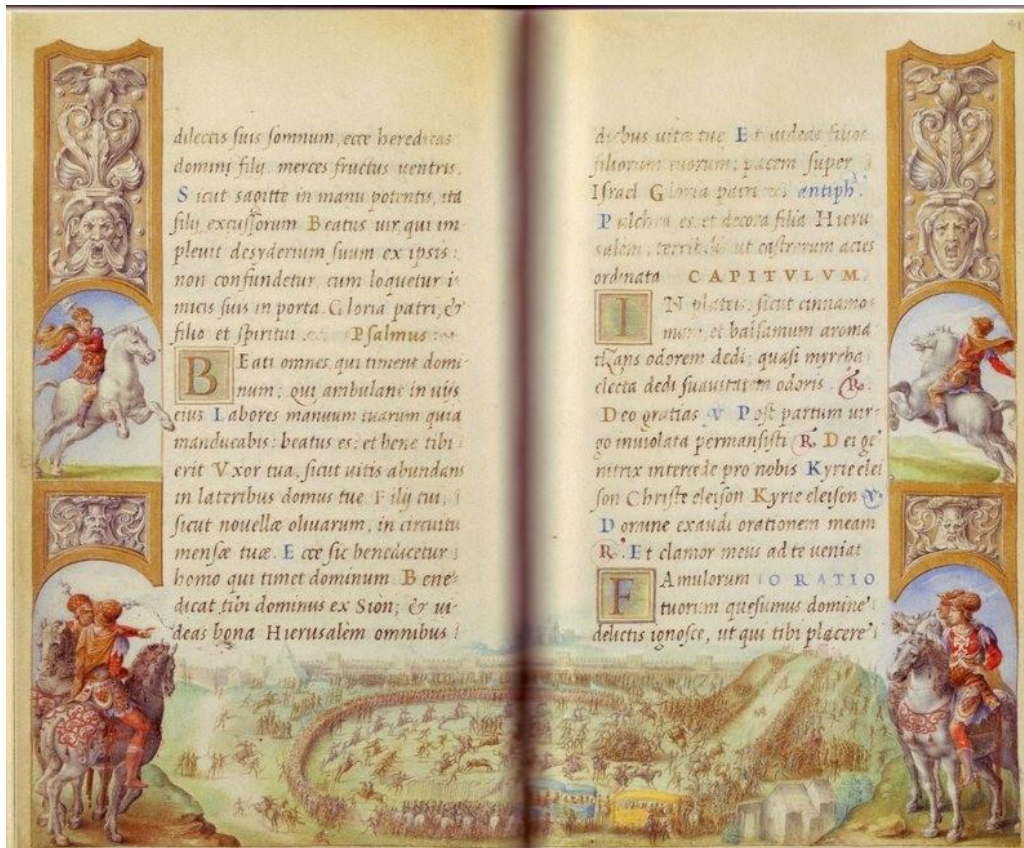 dilectis suis somnum, ecce hereditas
domini filij, merces fructus uentris.
Sicut sagitte in manu potentis, ita
filij excussorum Beatus uir qui im-
pleuit desyderium suum ex ipsis:
non confundetur, cum loquetur i-
nimicis suis in porta. Gloria patri, &
filio et spiritui Psalmus
BEati omnes qui timent domi-
num; qui ambulant in uijs
eius Labores manuum tuarum quia
manducabis: beatus es; et bene tibi
erit Vxor tua, sicut uitis abundans
in lateribus domus tue Filij tui,
sicut nouellæ oliuarum, in circuitu
mensæ tuæ. Ecce sic benedicetur
homo qui timet dominum Bene-
dicat tibi dominus ex Sion; & ui-
deas bona Hierusalem omnibus
91
diebus uitæ tue Et uideas filios
filiorum tuorum; pacem super
Israel Gloria patri antiph.
Pulchra es, et decora filia Hieru
salem, terribilis ut castrorum acies
ordinata CAPITVLVM.
IN plateis, sicut cinnamo-
mum, et balsamum aroma
tizans odorem dedi; quasi myrrha
electa dedi suauitatem odoris. R.
Deo gratias V Post partum uir-
go inuiolata permansisti R. Dei ge
nitrix intercede pro nobis Kyrie elei
son Christe eleison Kyrie eleison V.
Domine exaudi orationem meam
R. Et clamor meus ad te ueniat
FAmulorum ORATIO
tuorum quesumus domine
delictis ignosce, ut qui tibi placere